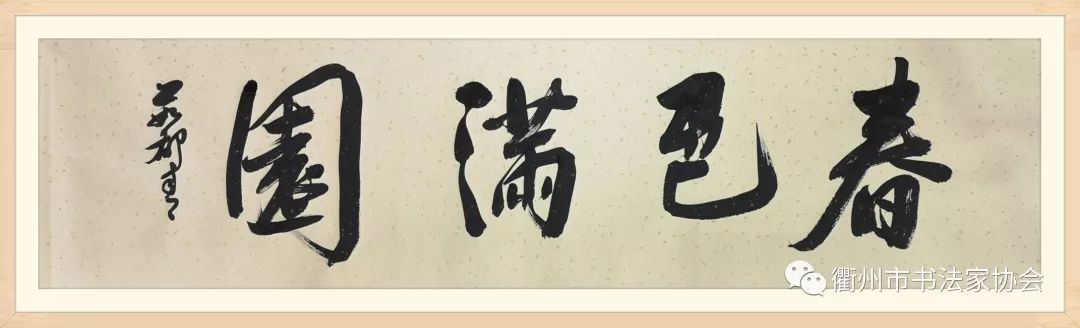 春色满園
衢州市书法家协会